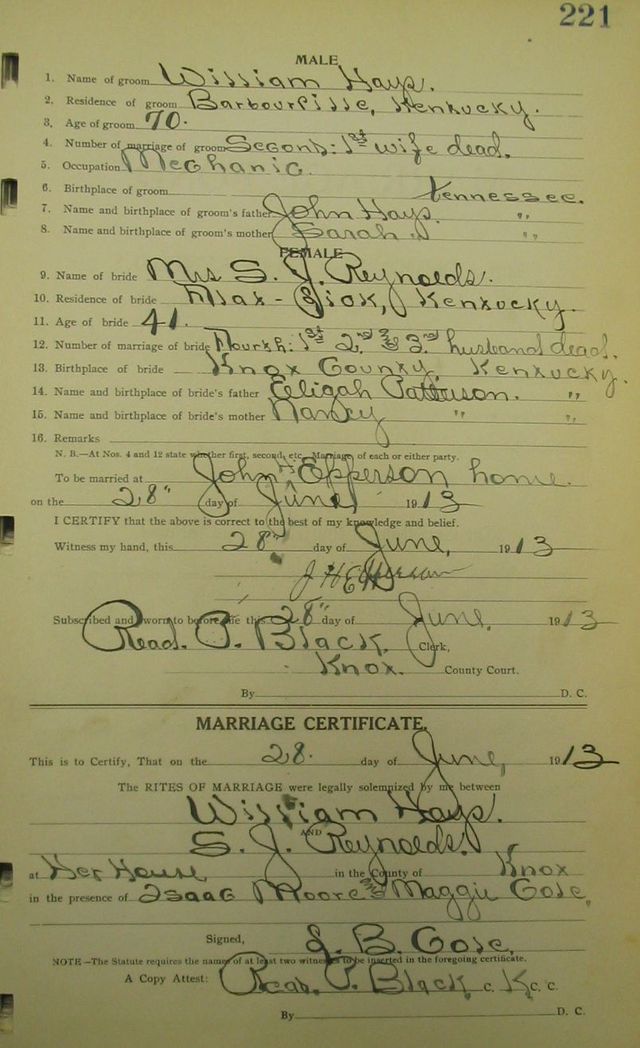 221
MALE
1. Name of groom William Hays.
2. Residence of groom Barbourville, Kentucky.
3. Age of groom 70.
4. Number of marriage of groom Second: 1st wife dead.
5. Occupation Mechanic.
6. Birthplace of groom Tennessee.
7. Name and birthplace of groom's father John Hays. "
8. Name and birthplace of groom's mother Sarah " "
FEMALE
9. Name of bride Mrs S. J. Reynolds.
10. Residence of bride Kentucky.
11. Age of bride 41.
12. Number of marriage of bride Fourth: 1st 2nd & 3rd husband dead.
13. Birthplace of bride Knox County, Kentucky.
14. Name and birthplace of bride's father Eligah Patterson. "
15. Name and birthplace of bride's mother Nancy " "
16. Remarks
N. B.—At Nos. 4 and 12 state whether first, second, etc., Marriage of each or either party.
To be married at John H Epperson home.
on the 28" day of June, 1913
I CERTIFY that the above is correct to the best of my knowledge and belief.
Witness my hand, this 28" day of June, 1913
J H Epperson
Subscribed and sworn to before me this 28" day of June, 1913
Read. P. Black. Clerk,
Knox. County Court.
By D. C.
MARRIAGE CERTIFICATE.
This is to Certify, That on the 28. day of June, 1913
The RITES OF MARRIAGE were legally solemnized by me between
William Hays.
AND
S. J. Reynolds.
at Her House in the County of Knox
in the presence of Isaac Moore & Maggie Gose,
Signed, J. B. Gose,
NOTE—The Statute requires the names of at least two witnesses to be inserted in the foregoing certificate.
A Copy Attest: Read. P. Black C. K. C. C.
By D. C.